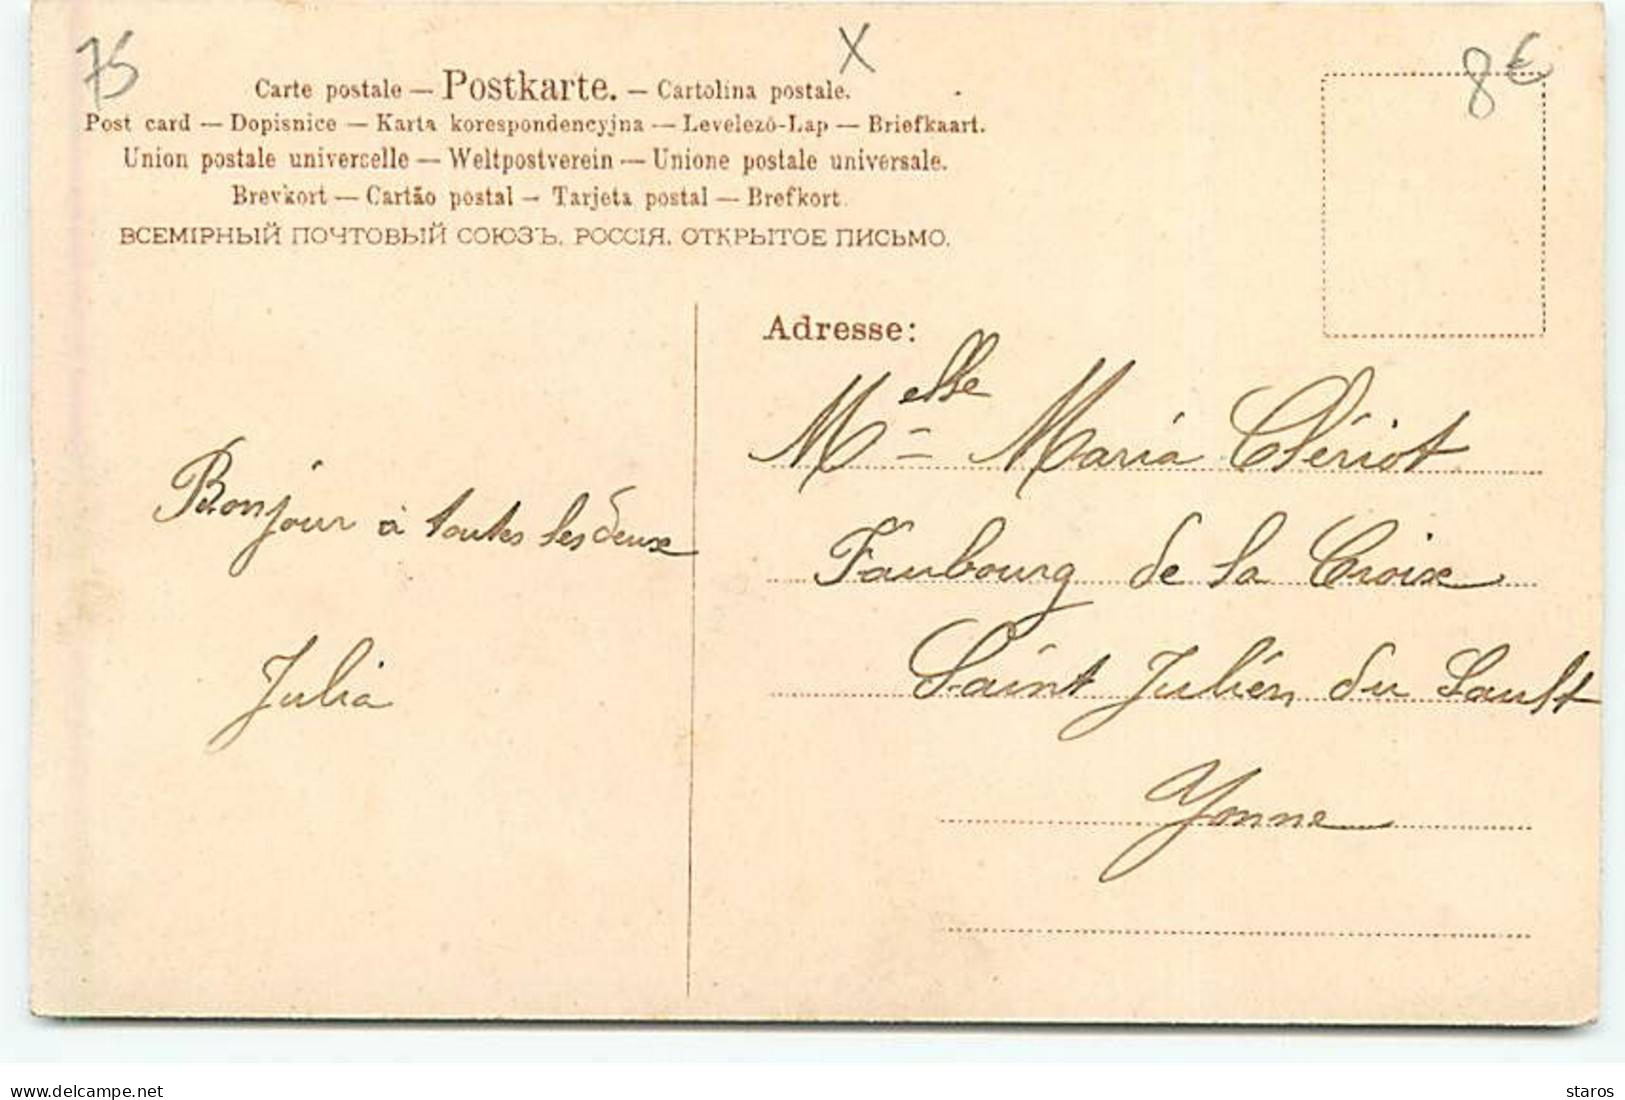 75
X
8€
Carte postale — Postkarte. — Cartolina postale.
Post card — Dopisnice — Karta korespondencyjna — Levelező-Lap — Briefkaart.
Union postale universelle — Weltpostverein — Unione postale universale.
Brevkort — Cartão postal — Tarjeta postal — Brefkort.
ВСЕМІРНЫЙ ПОЧТОВЫЙ СОЮЗЪ. РОССІЯ. ОТКРЫТОЕ ПИСЬМО.
Adresse:
Melle Maria Clériot
Faubourg de la Croix
Saint Julien du Sault
Yonne
Bonjour à toutes les deux
Julia
www.delcampe.net
staros